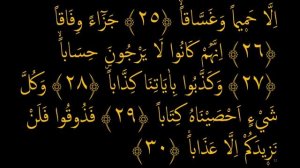 اِلَّا حَمٖيماً وَغَسَّاقاًۙ ﴿٢٥﴾ جَزَٓاءً وِفَاقاً
﴿٢٦﴾ اِنَّهُمْ كَانُوا لَا يَرْجُونَ حِسَاباًۙ
﴿٢٧﴾ وَكَذَّبُوا بِاٰيَاتِنَا كِذَّاباًؕ ﴿٢٨﴾ وَكُلَّ
شَيْءٍ اَحْصَيْنَاهُ كِتَاباًۙ ﴿٢٩﴾ فَذُوقُوا فَلَنْ
نَزٖيدَكُمْ اِلَّا عَذَاباًࣖ ﴿٣٠﴾